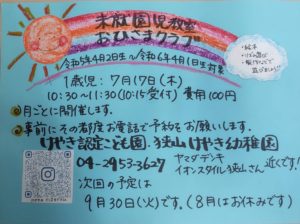 未就園児教室
おひさまクラブ
令和5年4月2日生〜令和6年4月1日生対象
・絵本
1歳児：7月17日(木)
10:30〜11:30(10:15受付) 費用100円
月ごとに開催します。
事前にその都度お電話で予約をお願いします。
けやき認定こども園・狭山けやき幼稚園
04-2953-3627
ヤマダデンキ
イオンスタイル狭山さん 近くです!
次回の予定は
9月30日(火)です。(8月はお休みです)